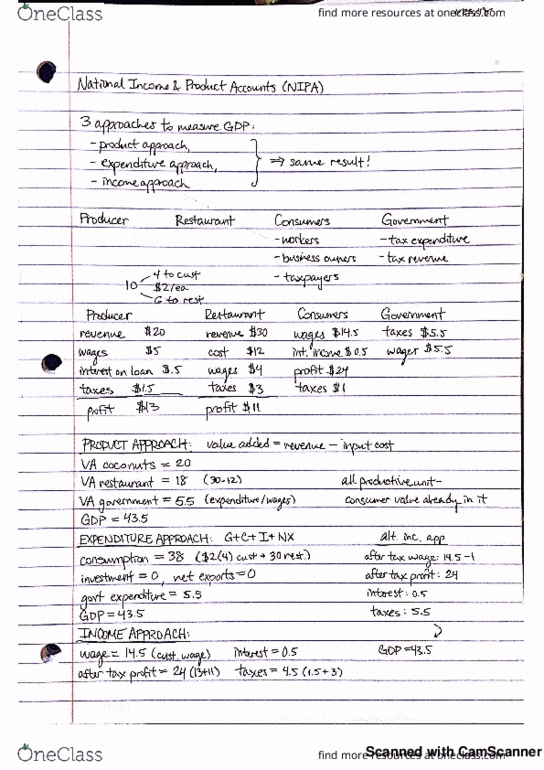 OneClass
find more resources at oneclass.com
National Income & Product Accounts (NIPA)
3 approaches to measure GDP:
- product approach,
- expenditure approach, ⇒ same result!
- income approach
Producer Restaurant Consumers Government
- workers - tax expenditure
- business owners - tax revenue
- taxpayers
10 4 to cust
$2/ea
6 to rest
Producer Restaurant Consumers Government
revenue $20 revenue $30 wages $14.5 taxes $5.5
wages $5 cost $12 int. income $0.5 wages $5.5
interest on loan $.5 wages $4 profit $24
taxes $1.5 taxes $3 taxes $1
profit $13 profit $11
PRODUCT APPROACH: value added = revenue - input cost
VA coconuts = 20
VA restaurant = 18 (30-12) all productive unit-
VA government = 5.5 (expenditure/wages) consumer value already in it
GDP = 43.5
EXPENDITURE APPROACH: G+C+I+NX alt. inc. app
consumption = 38 ($2(4) cust + 30 rest.) after tax wage: 14.5-1
investment = 0, net exports = 0 after tax profit: 24
govt expenditure = 5.5 interest: 0.5
GDP = 43.5 taxes: 5.5
INCOME APPROACH:
wage = 14.5 (cust. wage) interest = 0.5 GDP = 43.5
after tax profit = 24 (13+11) taxes = 4.5 (1.5+3)
OneClass
find more resources at oneclass.com
Scanned with CamScanner